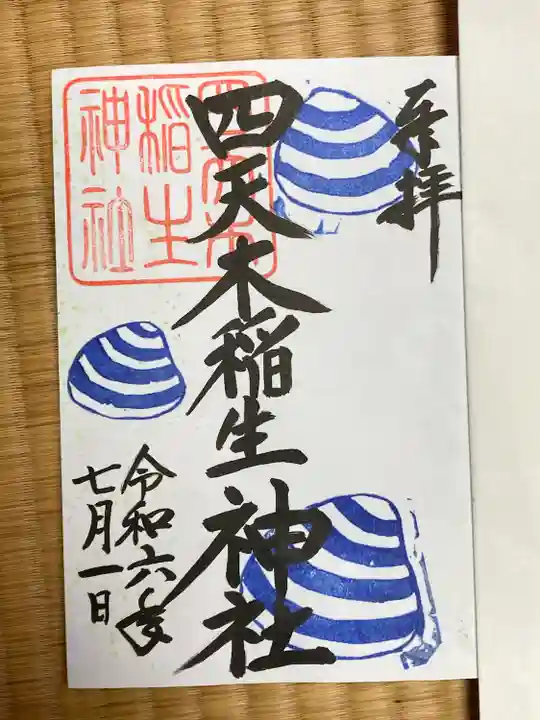 奉拝
四天木稲生神社
令和六年
七月一日
四天木
稲生
神社